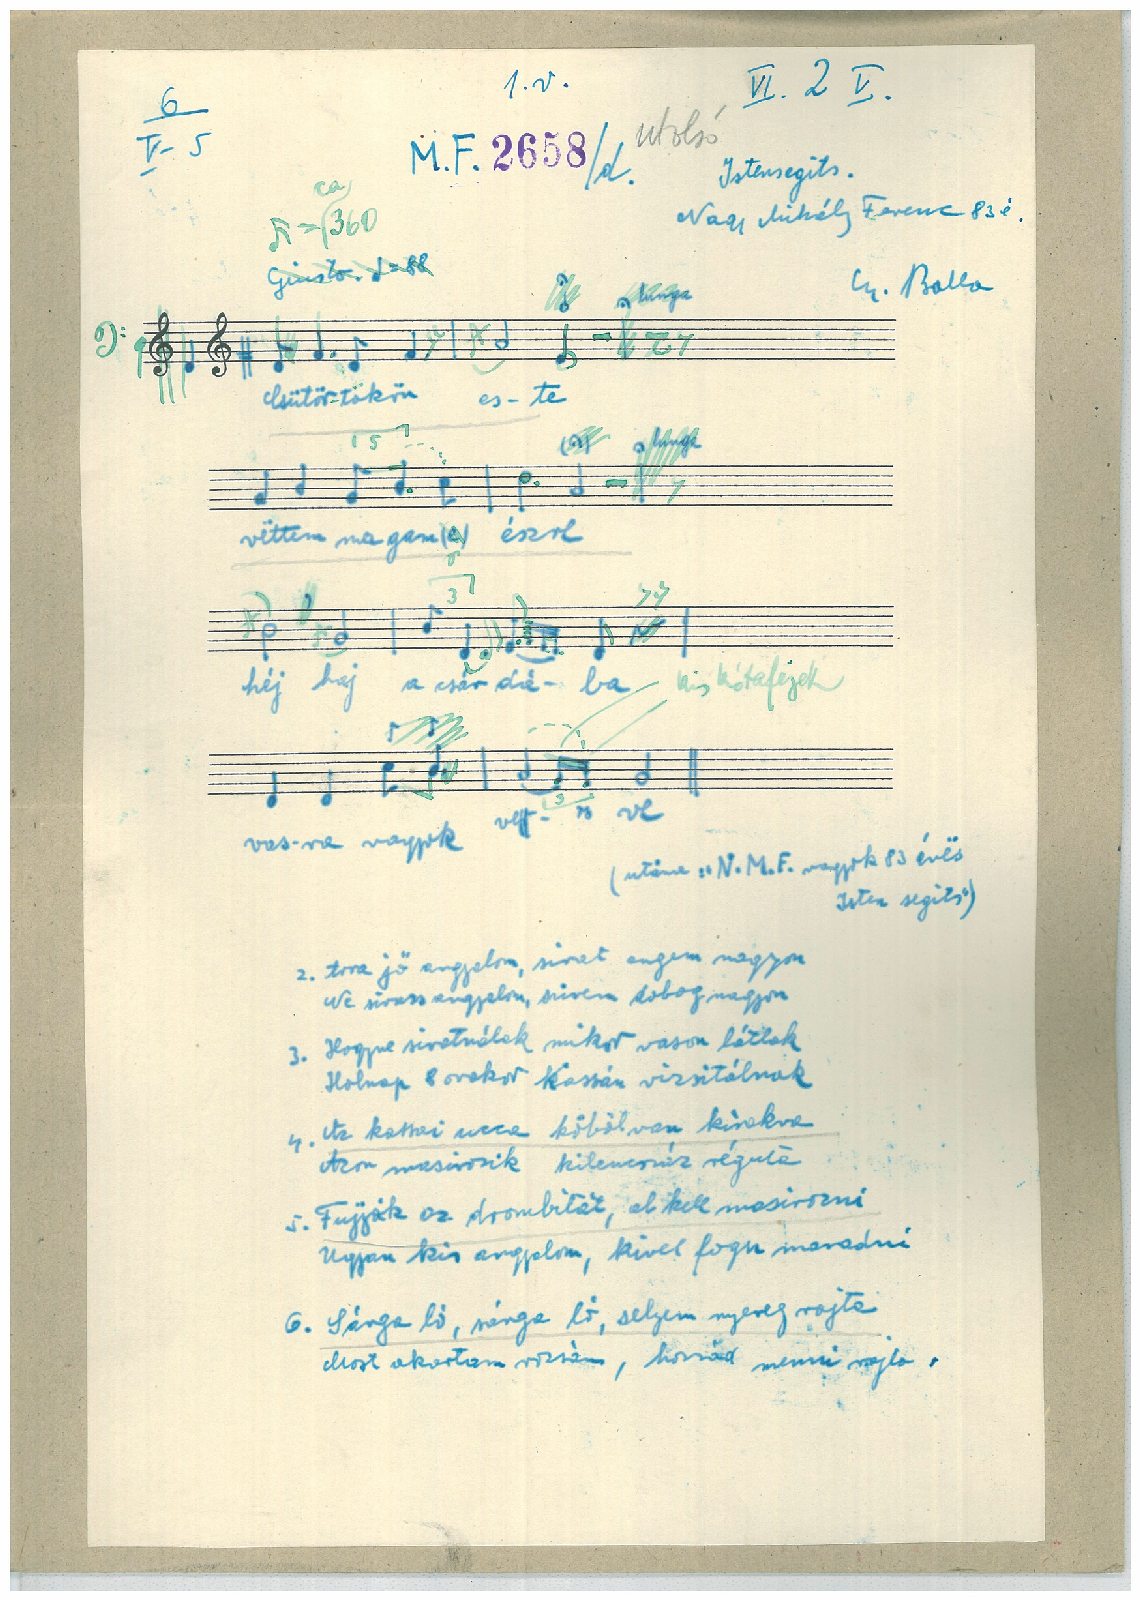 1. v.
VI. 2 V.
6
V - 5
M.F. 2658/d.
utolsó
Istensegits.
Nagy Mihály Ferenc 83 é.
ca
= 360
Giusto = 88
Gy. Balla
lunga
Csütör-tökön es-te
5
lunga
vëttem magam(e) észre
3
héj haj a csár-dá-ba
kis kótafejek
3
vas-ra vagyok ve
(utána: "N.M.F. vagyok 83 évës
Isten segits")
2. tova jő angyalom, sirat engem nagyon
Ne sirass angyalom, szivem dobog nagyon
3. Hogyne siratnálak mikor vason látlak
Holnap 8 orakor Kassán vizsitálnak
4. Az kassai ucca köböl van kirakva
Azon masirozik kilencszáz réguta
5. Fujják az drombitát, el kell masirozni
Ugyan kis angyalom, kivel fogsz maradni
6. Sárga ló, sárga ló, selyem nyereg rajta
Most akartam rózsám, hozzád menni rajta.